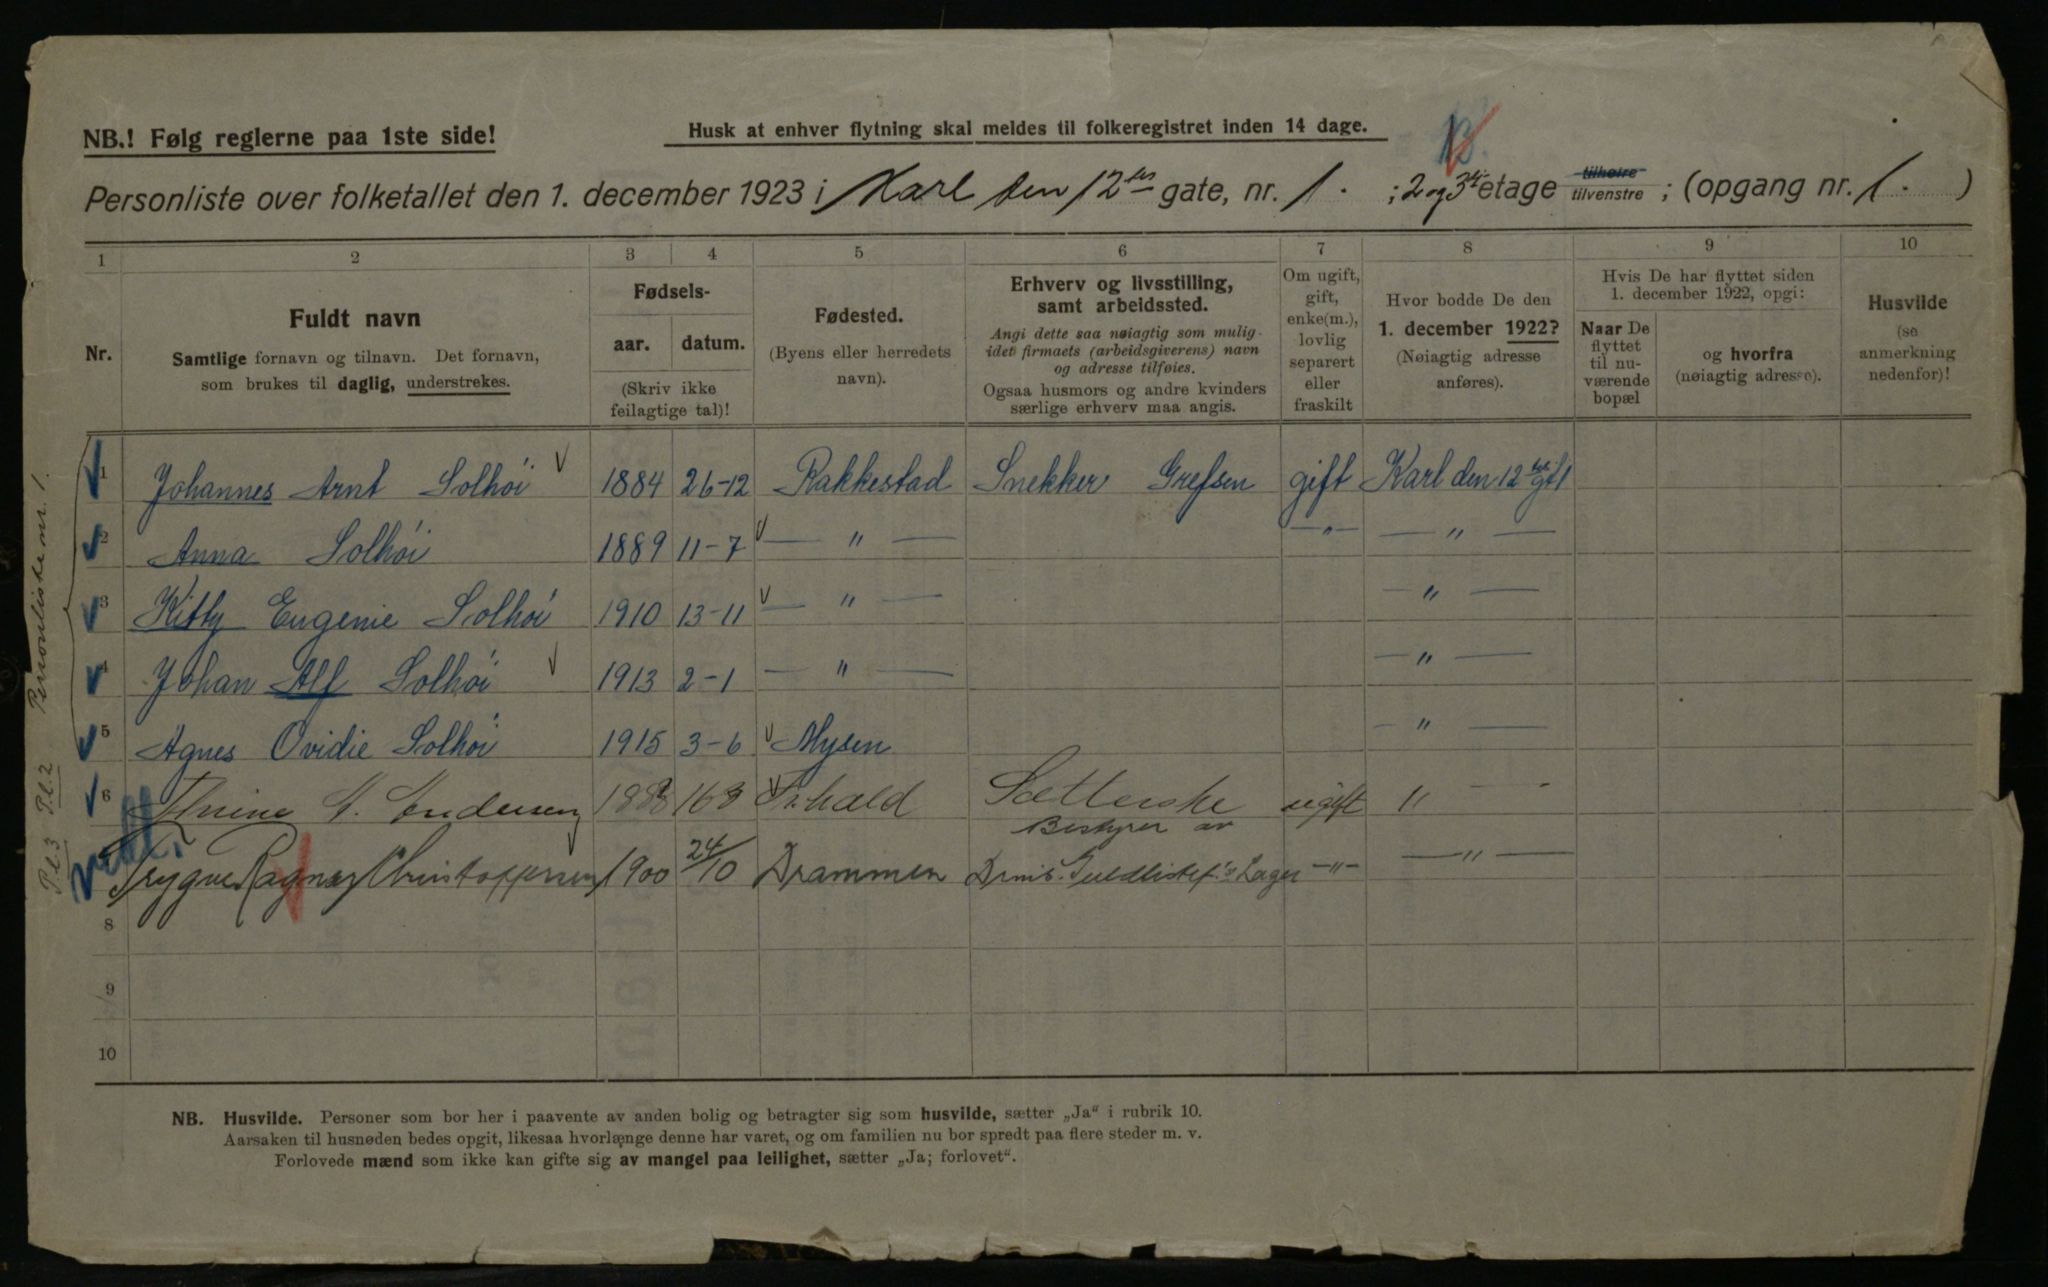 NB.! Følg reglerne paa 1ste side!
Husk at enhver flytning skal meldes til folkeregistret inden 14 dage.
Personliste over folketallet den 1. december 1923 i Karl den 12tes gate, nr. 1. ; 2 og 3dj etage tilhøire tilvenstre ; (opgang nr. 1. )
1 2 3 4 5 6 7 8 9 10
Nr.
Fuldt navn
Samtlige fornavn og tilnavn. Det fornavn,
som brukes til daglig, understrekes.
Fødsels-
aar. datum.
(Skriv ikke
feilagtige tal)!
Fødested.
(Byens eller herredets
navn).
Erhverv og livsstilling,
samt arbeidssted.
Angi dette saa nøiagtig som mulig-
idet firmaets (arbeidsgiverens) navn
og adresse tilføies.
Ogsaa husmors og andre kvinders
særlige erhverv maa angis.
Om ugift,
gift,
enke(m.),
lovlig
separert
eller
fraskilt
Hvor bodde De den
1. december 1922?
(Nøiagtig adresse
anføres).
Hvis De har flyttet siden
1. december 1922, opgi:
Naar De
flyttet
til nu-
værende
bopæl
og hvorfra
(nøiagtig adresse).
Husvilde
(se
anmerkning
nedenfor)!
1 Johannes Arnt Solhöi 1884 26-12 Rakkestad Snekker Grefsen gift Karl den 12tes gt 1
2 Anna Solhöi 1889 11-7 — " — — " — — " —
3 Kitty Eugenie Solhöi 1910 13-11 — " — — " —
4 Johan Alf Solhöi 1913 2-1 — " — — " —
5 Agnes Ovidie Solhöi 1915 3-6 Mysen — " —
6 M. Andersen 168 Fr.hald Sætterske ugift " -
Bestyrer av
Trygve Ragnar Christoffersen 1900 24/10 Drammen Lager — " — — " —
8
9
10
Personliste nr. 1.
P.l.2
P.l.3
NB. Husvilde. Personer som bor her i paavente av anden bolig og betragter sig som husvilde, sætter „Ja“ i rubrik 10.
Aarsaken til husnøden bedes opgit, likesaa hvorlænge denne har varet, og om familien nu bor spredt paa flere steder m. v.
Forlovede mænd som ikke kan gifte sig av mangel paa leilighet, sætter „Ja; forlovet“.